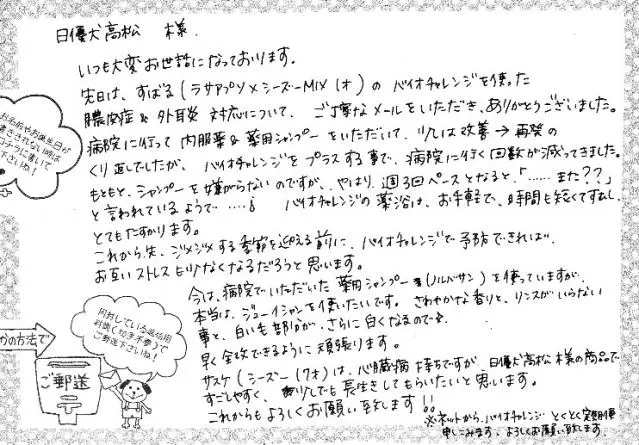 日優犬高松 様.
いつも大変お世話になっております。
先日は、すばる(ラサアプソ×シーズーMIX 1才)の バイオチャレンジを使った
膿皮症&外耳炎 対応について、ご丁寧なメールをいただき、ありがとうございました。
病院に行って 内服薬&薬用シャンプーをいただいて、少しは改善→再発の
くり返しでしたが、バイオチャレンジをプラスする事で、病院に行く回数が減ってきました。
もともと、シャンプーを嫌がらないのですが、やはり、週3回ペースとなると、「……また??」
と言われているようで……。 バイオチャレンジの薬浴は、お手軽で、時間も短くてすむし、
とてもたすかります。
これから先、ジメジメする季節を迎える前に、バイオチャレンジで予防できれば、
お互いストレスも少なくなるだろうと思います。
今は、病院でいただいた薬用シャンプー(ノルバサン)を使っていますが、
本当は、ジョーイシャンを使いたいです。さわやかな香りと、リンスがいらない
事と、白いも部分が、さらに白くなるので
早く全攻できるように頑張ります。
サスケ(シーズー 7才)は、心臓病持ちですが、日優犬高松様の商品で
すごしやすく、少しでも長生きしてもらいたいと思います。
これからもよろしくお願い致します!!
※ネットから、バイオチャレンジ とくとく定期便
申しこみます。よろしくお願い致します。
お名前やお誕生日が
書ききれない時は
コチラに書いて
下さいね!
同封している返信用
封筒(切手不要)で
ご郵送下さいね!
の方法で
ご郵送